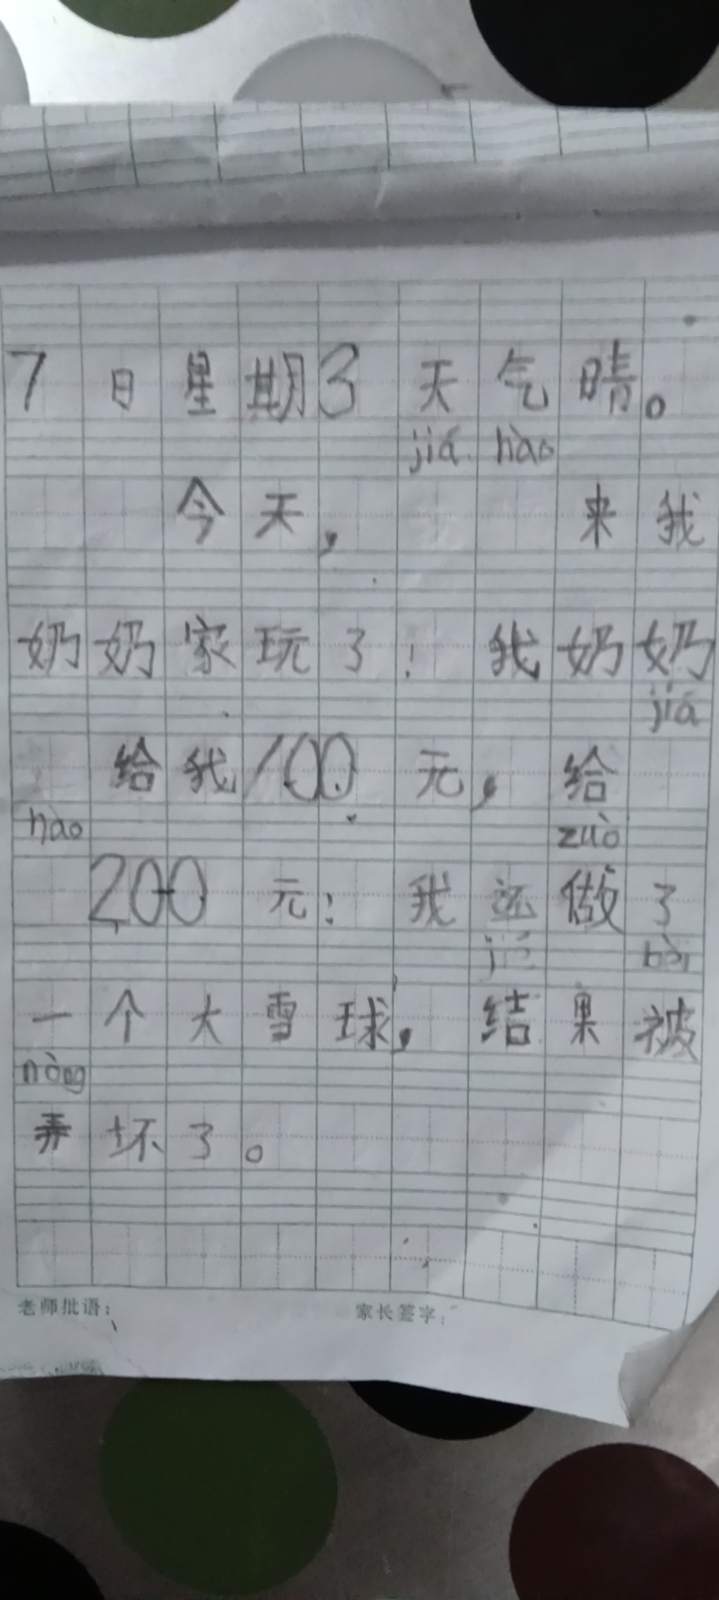 7日星期3 天气晴。
jiá hào
今天， 来我
奶奶家玩了！ 我奶奶
jiá
给我100 元，给
hào
zuò
200 元！ 我还做了
bèi
一个大雪球，结果被
nòng
弄坏了。
老师批语： 家长签字：